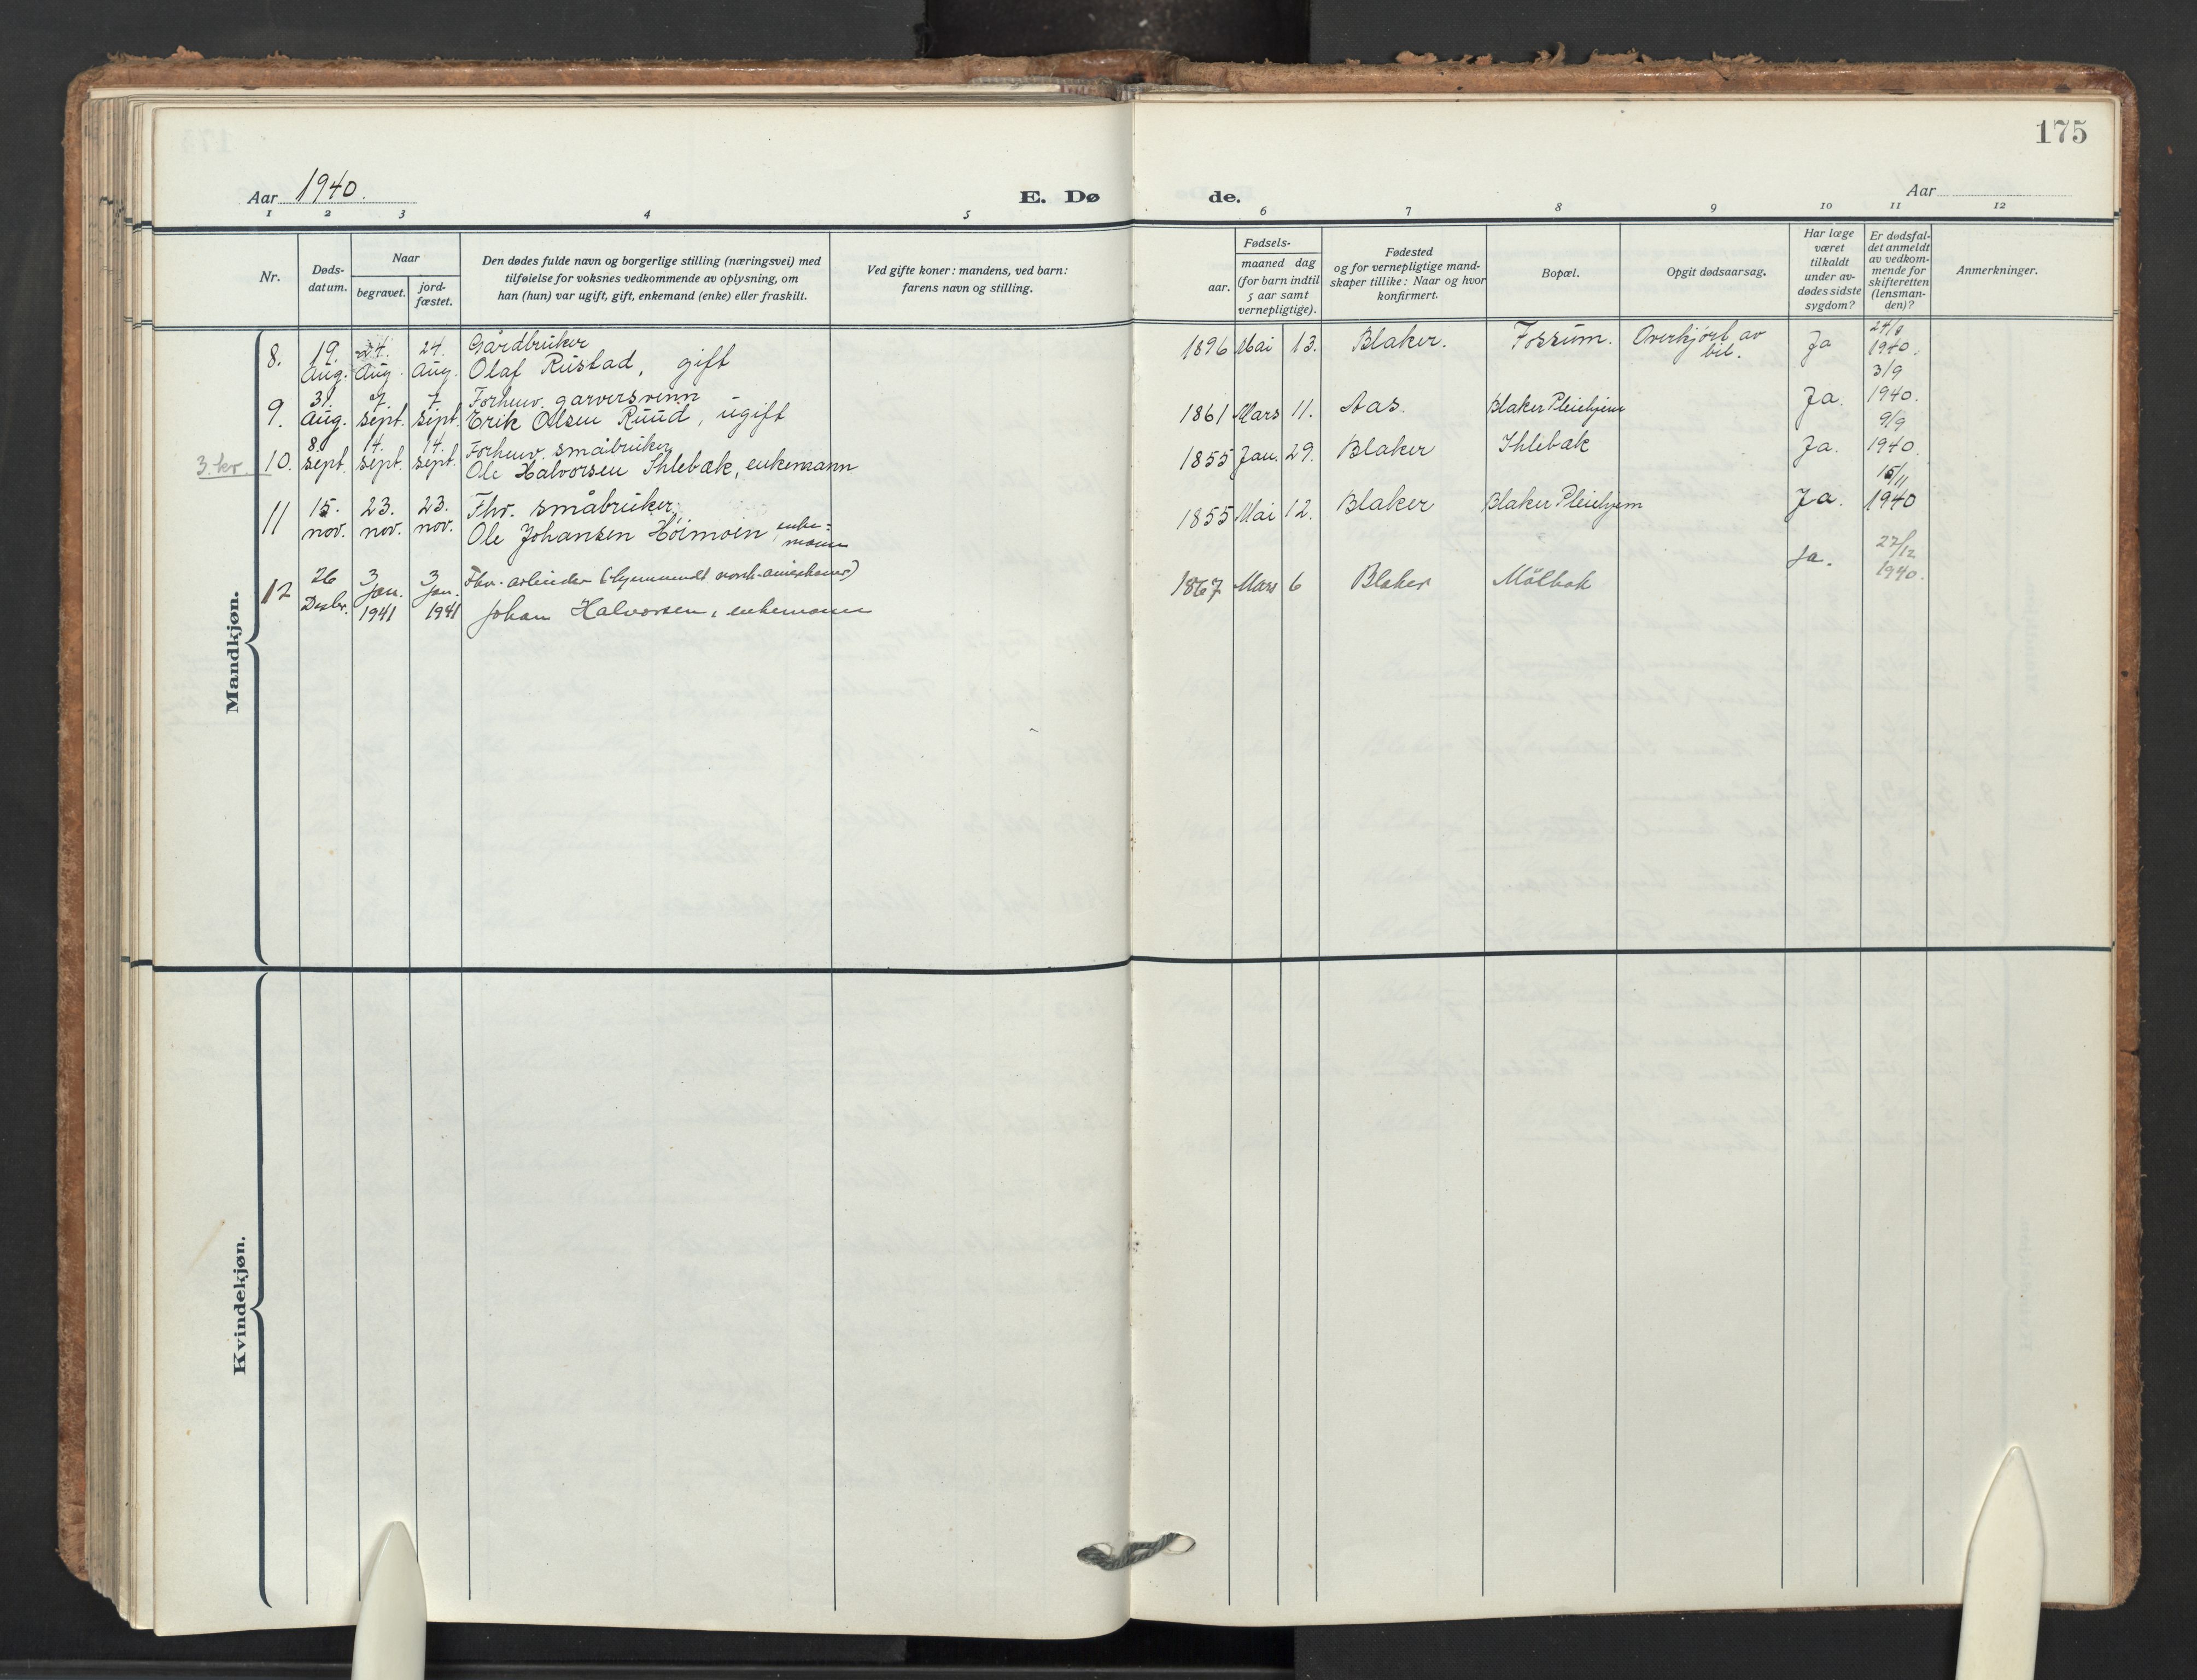 175
Aar 1940.
E. Dø de.
Aar
1 2 3 4 5 6 7 8 9 10 11 12
Nr.
Døds-
datum.
Naar
begravet.
jord-
fæstet.
Den dødes fulde navn og borgerlige stilling (næringsvei) med
tilføielse for voksnes vedkommende av oplysning, om
han (hun) var ugift, gift, enkemand (enke) eller fraskilt.
Ved gifte koner: mandens, ved barn:
farens navn og stilling.
Fødsels-
aar.
maaned dag
(for barn indtil
5 aar samt
vernepligtige).
Fødested
og for vernepligtige mand-
skaper tillike: Naar og hvor
konfirmert.
Bopæl.
Opgit dødsaarsag.
Har læge
været
tilkaldt
under av-
dødes sidste
sygdom?
Er dødsfal-
det anmeldt
av vedkom-
mende for
skifteretten
(lensman-
den)?
Anmerkninger.
Mandkjøn.
8. 19. Aug. 24. Aug. 24. Aug. Gårdbruker
Olaf Rustad, gift
1896 Mai 13. Blaker. Fossum. Overkjørt av
bil. Ja 24/8
1940.
9. 31. Aug. 7 sept. 7. sept. Forhenv. garversvenn
Erik Olsen Ruud, ugift
1861 Mars 11. Aas. Blaker Pleiehjem Ja. 3/9
1940.
3. kr. 10. 8. sept. 14. sept. 14. sept. Forhenv. småbruker
Ole Halvorsen Ihlebæk, enkemann
1855 Jan. 29. Blaker Ihlebæk Ja. 9/9
1940.
11 15. nov. 23. nov. 23. nov. Fhv. småbruker,
Ole Johansen Høimoen, enke=
mann
1855 Mai 12. Blaker Blaker Pleiehjem Ja. 15/11
1940
12 26 Desbr. 3 Jan. 1941 3 Jan. 1941 Fhv. arbeider (hjemvendt norsk-amerikaner)
Johan Halvorsen, enkemann
1867 Mars 6 Blaker Mølbak Ja. 27/12
1940.
Kvindekjøn.